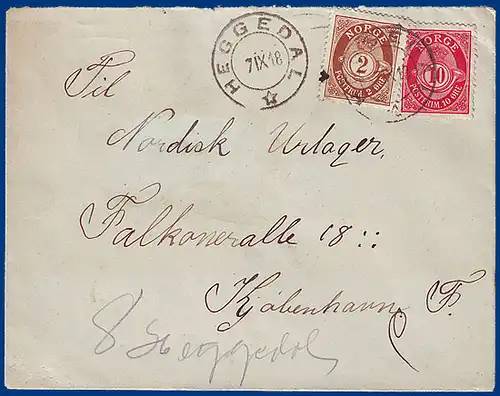 HEGGEDAL
7 IX 18
NORGE
2
POSTFRIM. 2 ØRE
NORGE
10
POSTFRIM. 10 ØRE
Til
Nordisk Urlager,
Falkoneralle 18::
Kjøbenhavn, F.
Heggedal